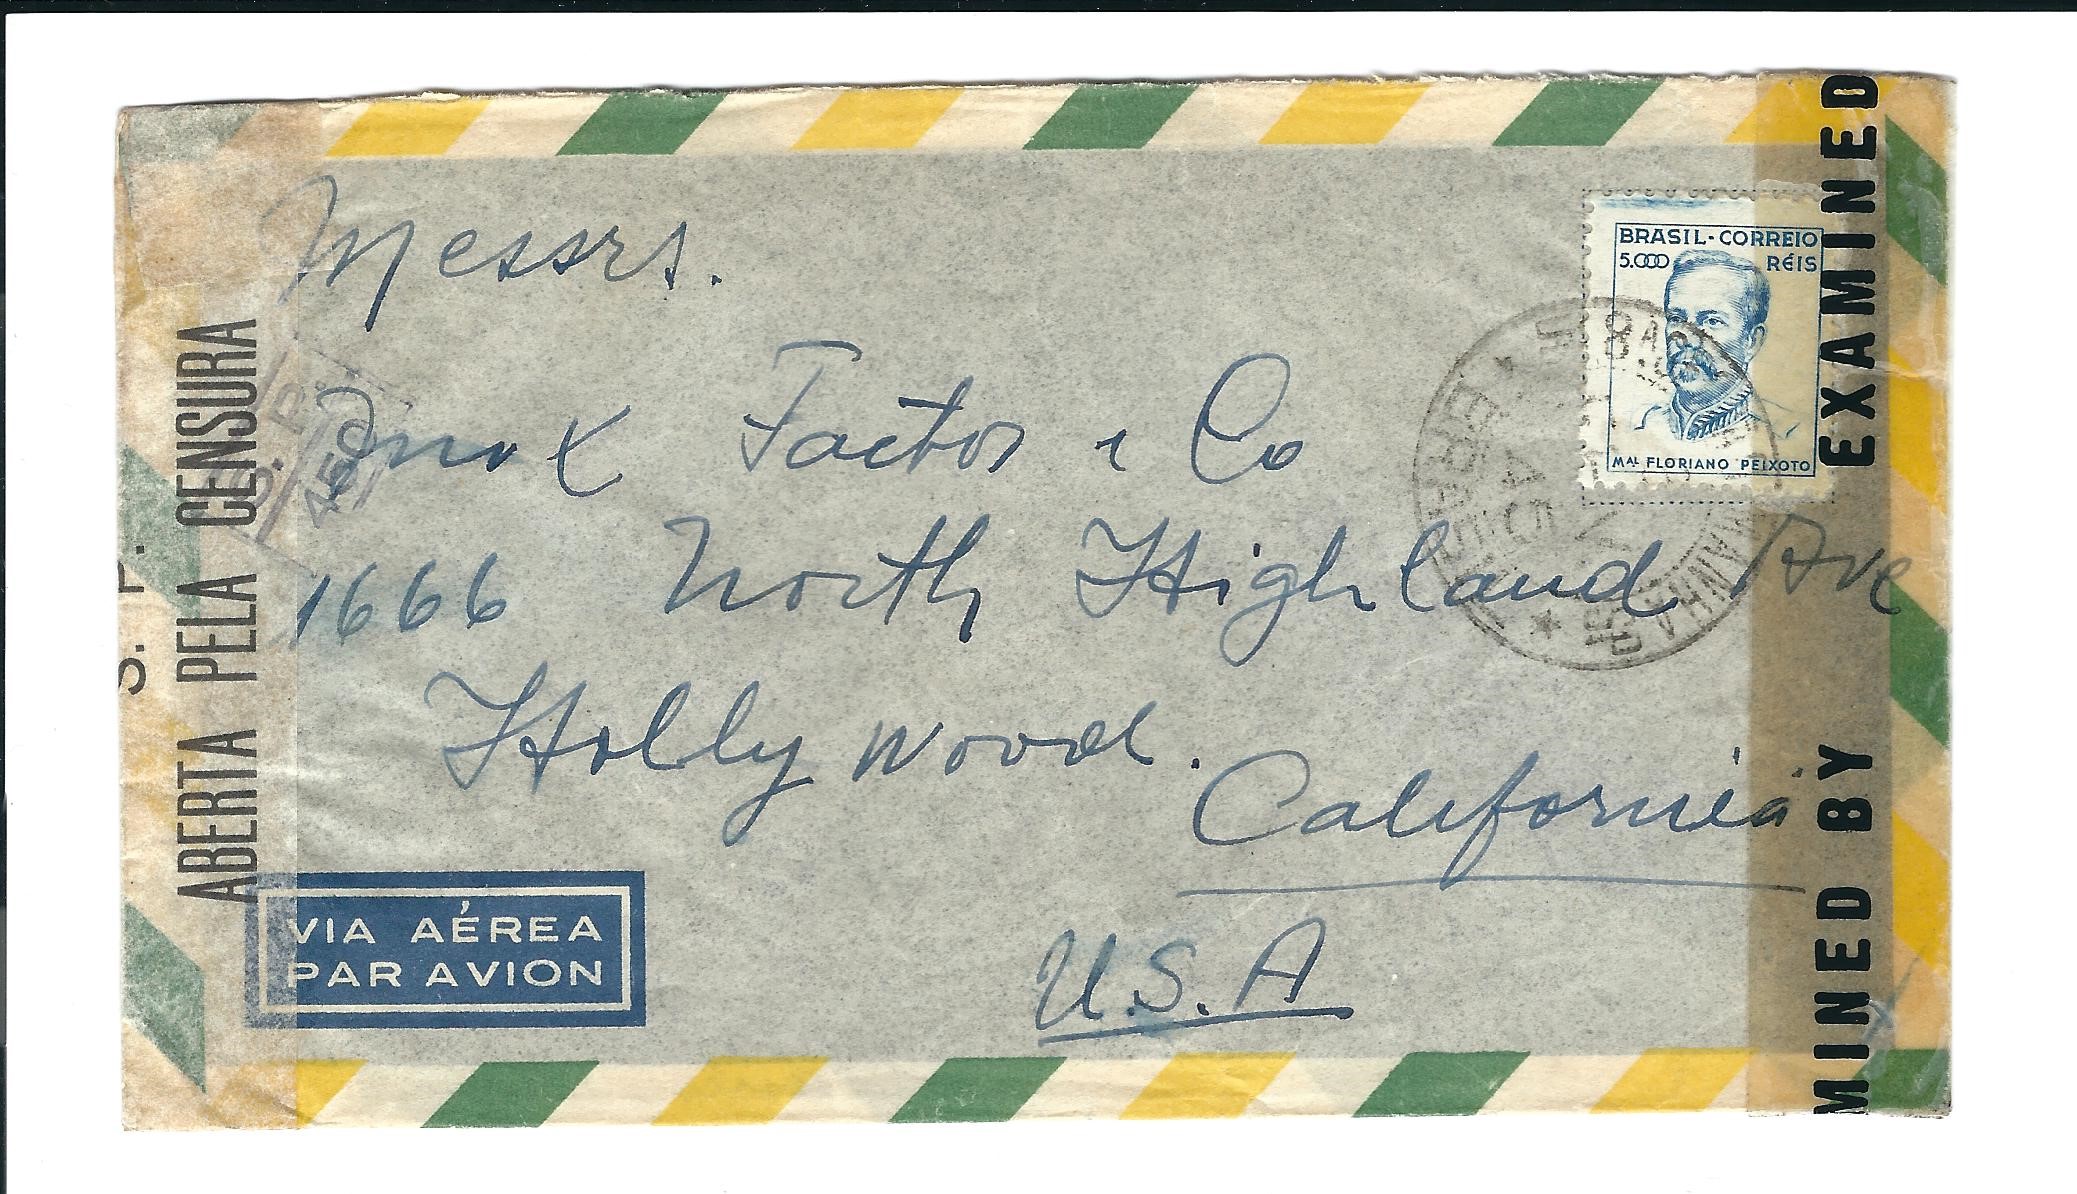 Messrs.
max Factor & Co
1666 North Highland Ave
Hollywood.
California
U.S.A
BRASIL-CORREIO
5.000 RÉIS
MAL FLORIANO PEIXOTO
VIA AÉREA
PAR AVION
ABERTA PELA CENSURA
S. P.
450
EXAMINED
MINED BY